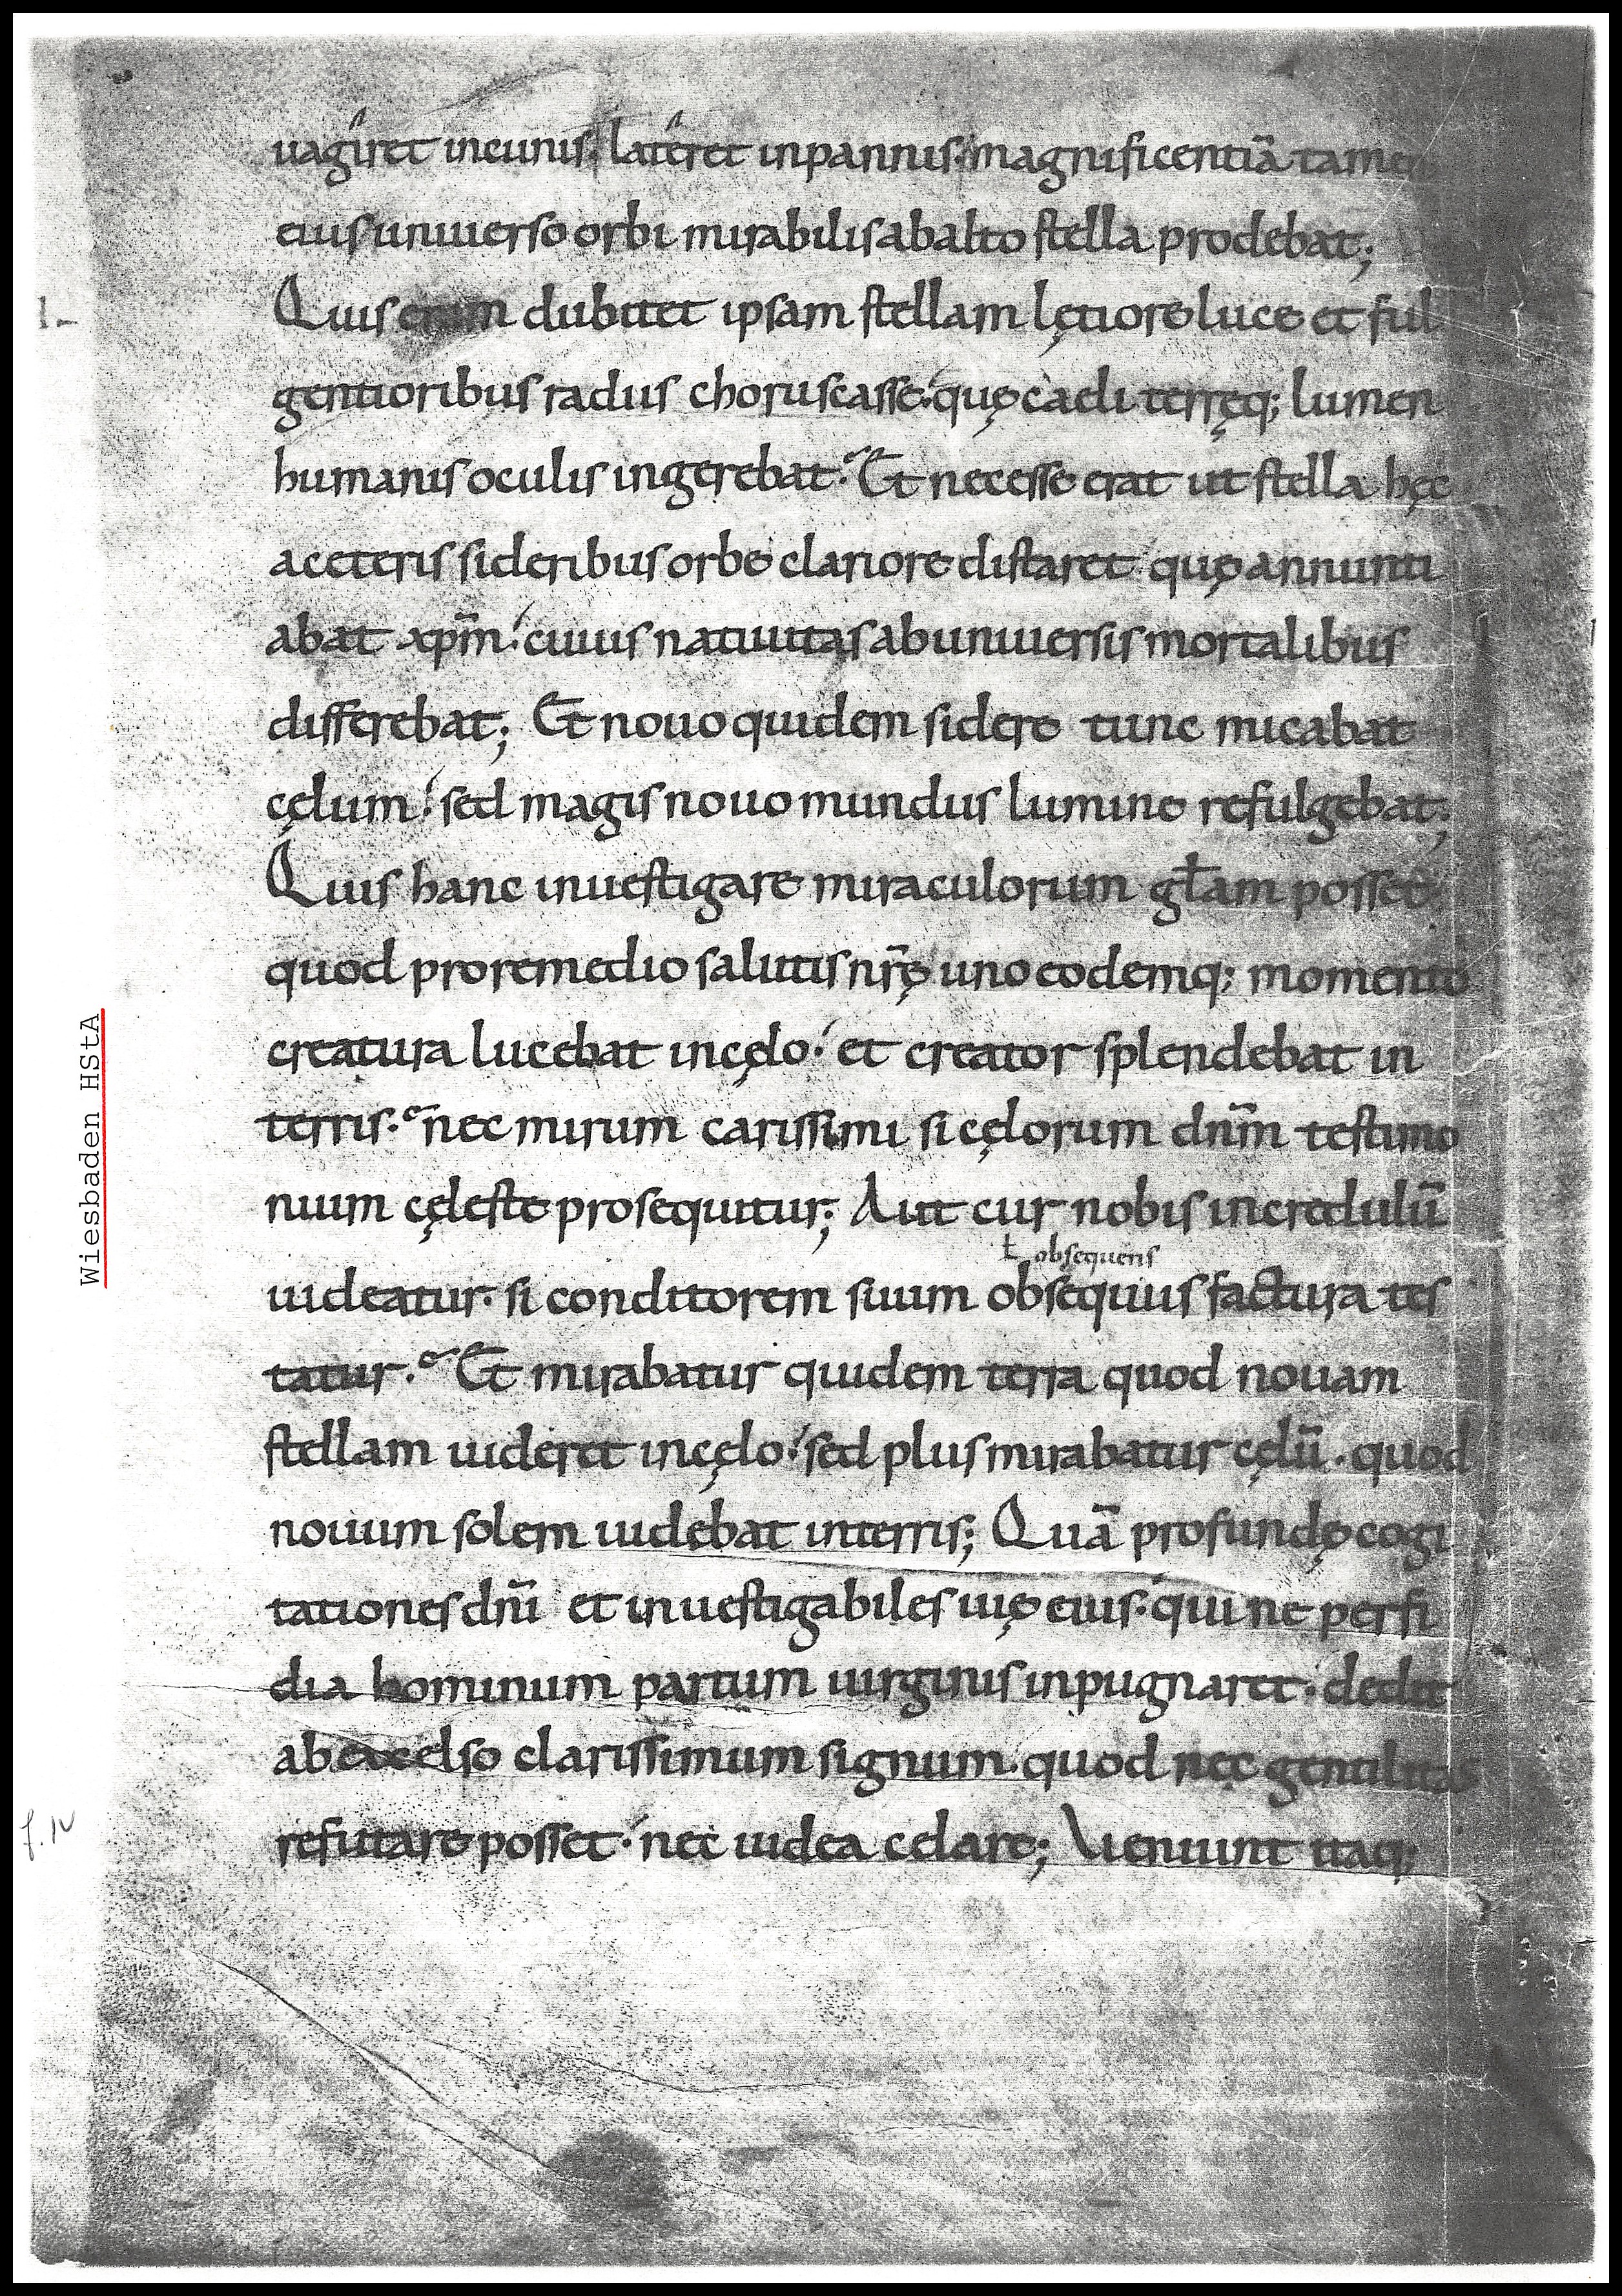 uagiret incunis; lateret inpannis; magnificentiā tamen
eius uniuerso orbi mirabilis abalto stella prodebat;
Quis enim dubitet ipsam stellam lętiore luce et ful
gentioribus radiis choruscasse; quę caeli terręq; lumen
humanis oculis ingerebat. Et necesse erat ut stella hęc
aceteris sideribus orbe clariore distaret quę annunti
abat xp̄m; cuius natiuitas ab uniuersis mortalibus
differebat; Et nouo quidem sidere tunc micabat
cęlum; sed magis nouo mundus lumine refulgebat;
Quis hanc inuestigare miraculorum gła̅m posset
quod proremedio salutis nr̄ę uno eodemq; momento
creatura lucebat incęlo; et creator splendebat in
terris. nec mirum carissimi si cęlorum dnm̄ testimo
nium cęleste prosequitur; Aut cur nobis incredulū
ł obsequens
uideatur. si conditorem suum obsequiis factura tes
tatur. Et mirabatur quidem terra quod nouam
stellam uideret incęlo; sed plus mirabatur cęlū. quod
nouum solem uidebat interris; Quā profundę cogi
tationes dnī et inuestigabiles uię eius; qui ne perfi
dia hominum partum uirginis inpugnaret; dedit
abexcelso clarissimum signum. quod nec gentilitas
refutare posset; nec iudea celare; Ueniunt itaq;
l-
Wiesbaden HStA
f. IV